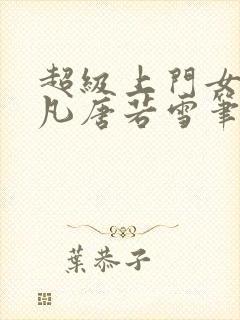 超級上門女
凡唐若雪筆
葉恭子